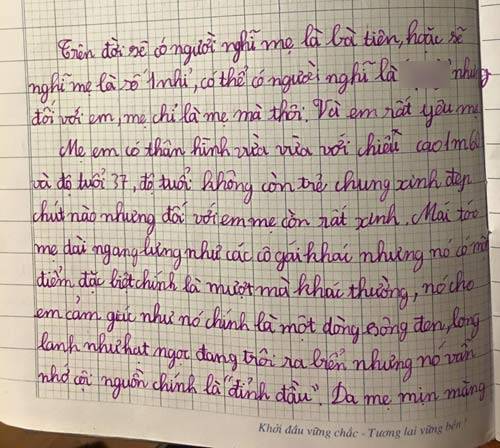 Trên đời sẽ có người nghĩ mẹ là bà tiên, hoặc sẽ
nghĩ mẹ là số 1 nhỉ, có thể có người nghĩ là nhưng
đối với em, mẹ chỉ là mẹ mà thôi. Và em rất yêu mẹ
Mẹ em có thân hình vừa vừa với chiều cao 1m60
và độ tuổi 37, độ tuổi không còn trẻ chung xinh đẹp
chút nào nhưng đối với em mẹ còn rất xinh. Mái tóc
mẹ dài ngang lưng như các cô gái khác nhưng nó có một
điểm đặc biệt chính là mượt mà khác thường, nó cho
em cảm giác như nó chính là một dòng sông đen, long
lanh như hạt ngọc đang trôi ra biển nhưng nó vẫn
nhớ cội nguồn chính là "đỉnh đầu". Da mẹ mịn màng
Khởi đầu vững chắc - Tương lai vững bền!